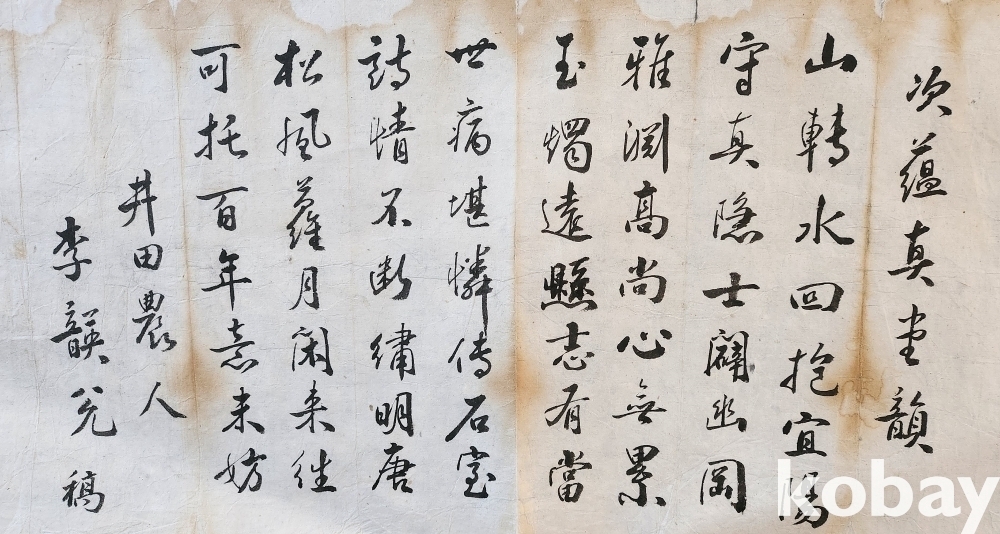 次蘊真堂韻
山轉水回抱宜陽
守真隱士闢幽岡
雅淵高尚心無累
玉燭遠懸志有當
世病堪憐傳石室
詩情不斷繡明唐
松風蘿月閑來往
可托百年意未妨
井田農人
李韺稿
kobay